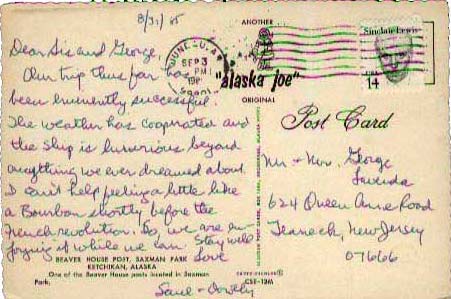 8/31/85
Dear Sis and George,
Our trip thus far has
been eminently successful.
The weather has cooperated and
the ship is luxurious beyond
anything we ever dreamed about
I can't help feeling a little like
a Bourbon shortly before the
French revolution. So, we are en-
joying it while we can. Stay well
Love
BEAVER HOUSE POST, SAXMAN PARK
KETCHIKAN, ALASKA
One of the Beaver House posts located in Saxman
Park.
CSE-1246
ANOTHER
"alaska joe"
ORIGINAL
JUNEAU, AK
SEP 3
PM
Sinclair Lewis
USA
14
Post Card
Mr + Mrs. George
624 Queen Anne Road
Teaneck, New Jersey
07666